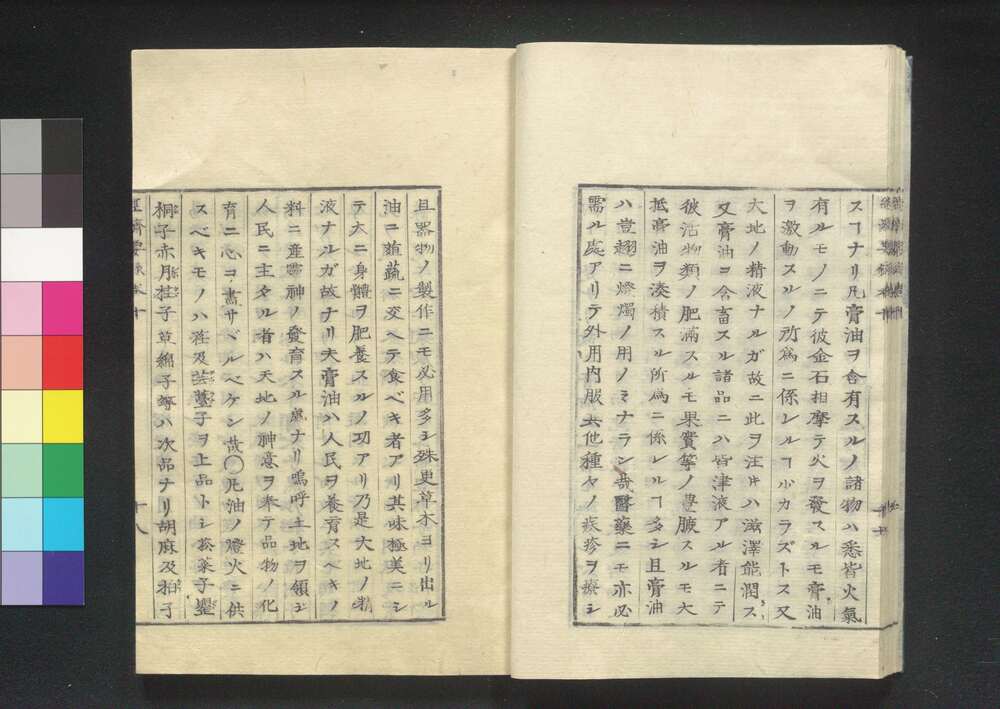 スヿナリ凡膏油ヲ含有スルノ諸物ハ悉皆火氣
有ルモノニテ彼金石相摩テ火ヲ發スルモ膏油
ヲ激動スルノ所爲ニ係レルヿ少カラズトス又
大地ノ精液ナルガ故ニ此ヲ注キハ滋澤能潤ス
又膏油ヲ含畜スル諸品ニハ皆津液アル者ニテ
彼活物類ノ肥滿スルモ果實等ノ豊腴スルモ大
抵膏油ヲ湊積スル所爲ニ係レルヿ多シ且膏油
ハ豈翅ニ燈燭ノ用ノミナランヤ哉醫藥ニモ亦必
需ル處アリテ外用内服其他種々ノ疾疹ヲ療シ
且器物ノ製作ニモ必用多シ殊更草木ヨリ出ル
油ニ蔬ニ交ヘテ食ベキ者アリ其味極美ニシ
テ大ニ身體ヲ肥養スルノ功アリ乃是大地ノ精
液ナルガ故ナリ夫膏油ハ人民ヲ養育スベキノ
料ニ産靈神ノ發育スル處ナリ嗚呼土地ヲ領シ
人民ニ主タル者ハ天地ノ神意ヲ奉テ品物ノ化
育ニ心ヲ盡サズルベケン哉〇凡油ノ燈火ニ供
スベキモノハ荏及蕓薹子ヲ上品トシ菘菜子
桐子赤月桂子草綿子等ハ次品ナリ胡麻及栢子
經濟要録卷十
十八